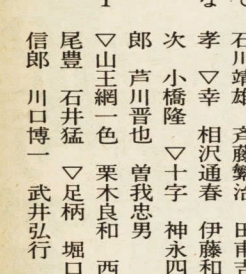 石川靖雄 斉藤繁治
孝 ▽幸 相沢通春 伊藤和
次 小橋隆 ▽十字 神永四
郎 芦川晋也 曽我忠男
▽山王網一色 栗木良和 西
尾豊 石井猛 ▽足柄 堀口
信郎 川口博一 武井弘行